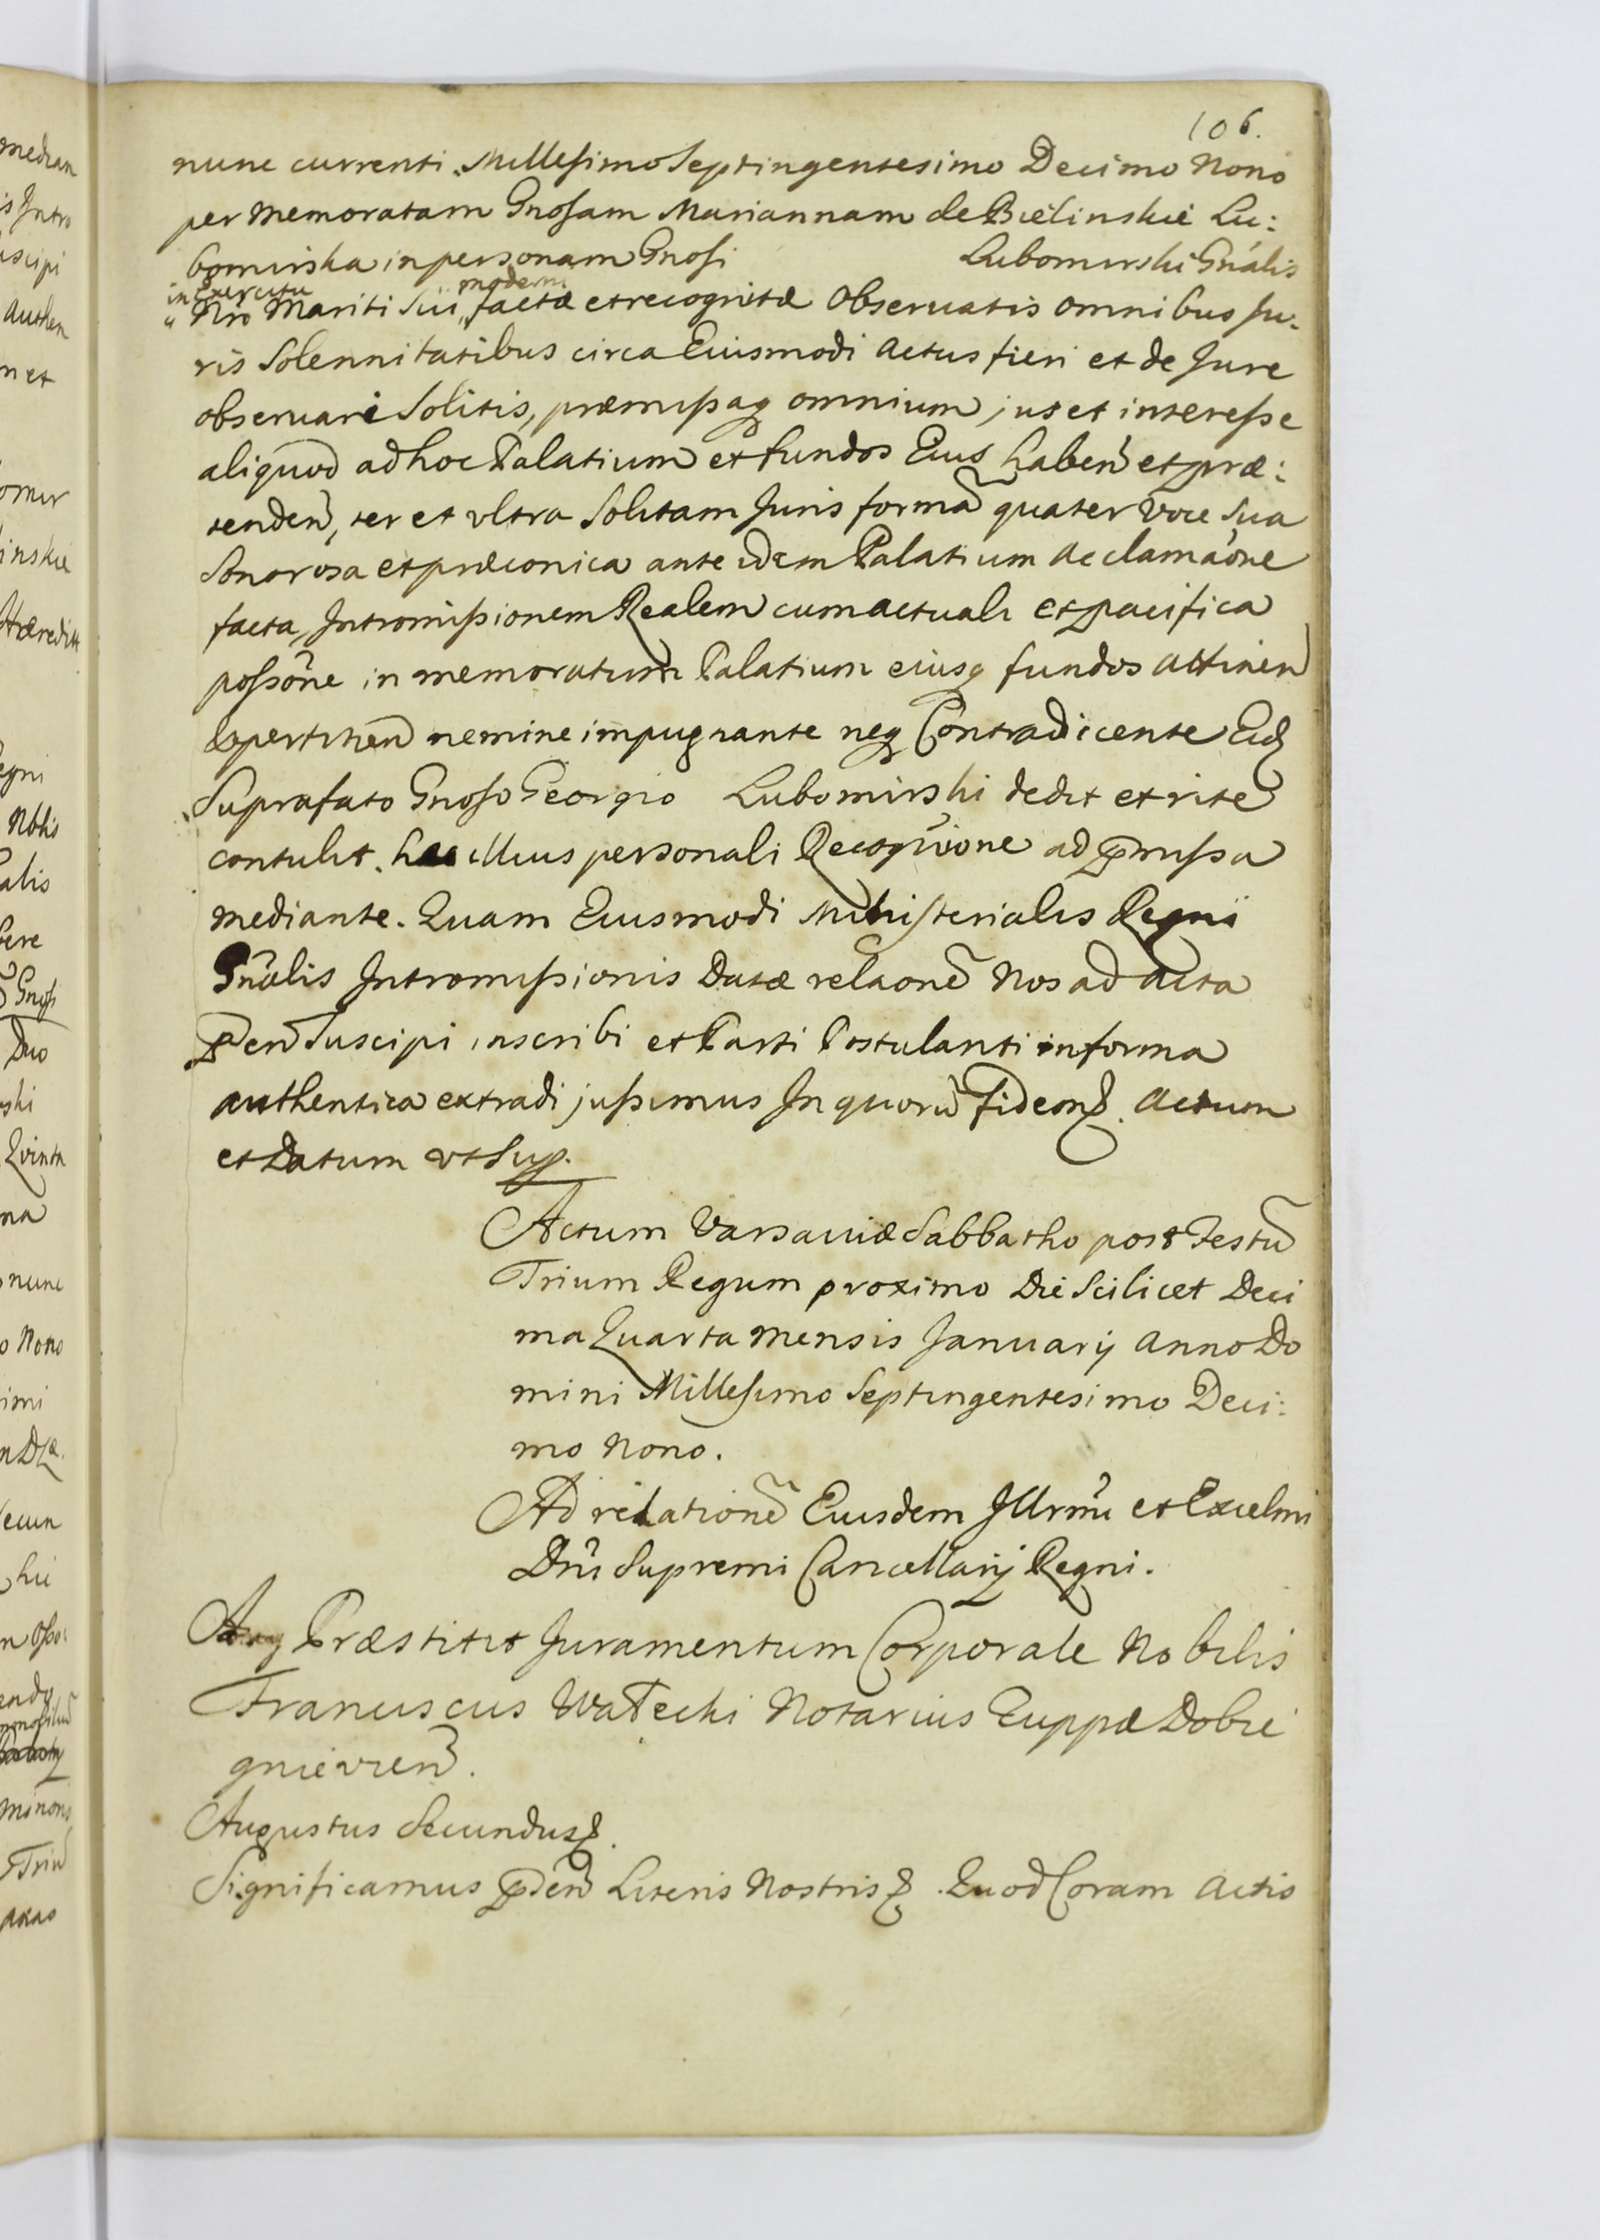 106.
nunc currenti Millesimo Septingentesimo Decimo Nono
per memoratam Gnosam Mariannam de Bielinskie Lu:
bomirska in personam Gnosi Lubomirski Gnalis
in Exercitu modern
Nro Mariti Sui factæ et recognitæ observatis omnibus Ju:
ris Solennitatibus circa Eiusmodi Actus fieri et de Jure
observari Solitis, præmissaq omnium jus et interesse
aliquod ad hoc Palatium et fundos Eius haben et præ:
tenden, ter et ultra Solitam Juris forma quater voce sua
Sonorosa et præconica ante idem Palatium acclamaone
facta, Intromissionem Realem cum actuali et pacifica
possone in memoratum Palatium eiusq fundos attinen
& pertinen nemine impugnante neq Contradicente Eid
Suprafato Gnoso Georgio Lubomirski dedit et rite
contulit. hac illius personali Recognione ad pmissa
mediante. Quam Eiusmodi Ministerialis Regni
Gnalis Intromissionis Datæ relaone Nos ad Acta
pen Suscipi inscribi et Parti Postulanti in forma
authentica extradi jussimus In quoru fidem &. Actum
et Datum ut Sup.
Actum Varsaviæ Sabbatho post Festu
Trium Regum proximo Die Scilicet Deci
ma Quarta mensis Januarij Anno Do
mini Millesimo Septingentesimo Deci:
mo Nono.
Ad relatione Eiusdem Illrmi et Excelmi
Dni Supremi Cancellarij Regni.
Præstitit Juramentum Corporale Nobilis
Franciscus Notarius Zuppæ Dobie
gnievien.
Augustus Secundus &.
Significamus pden Literis Nostris &. Quod Coram Actis